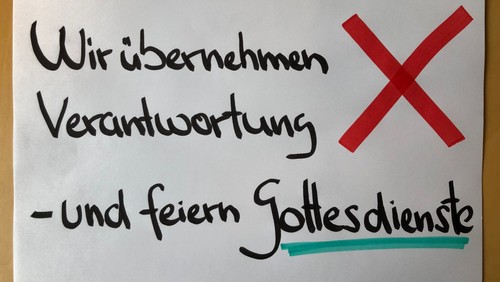 Wir übernehmen
Verantwortung
- und feiern Gottesdienste